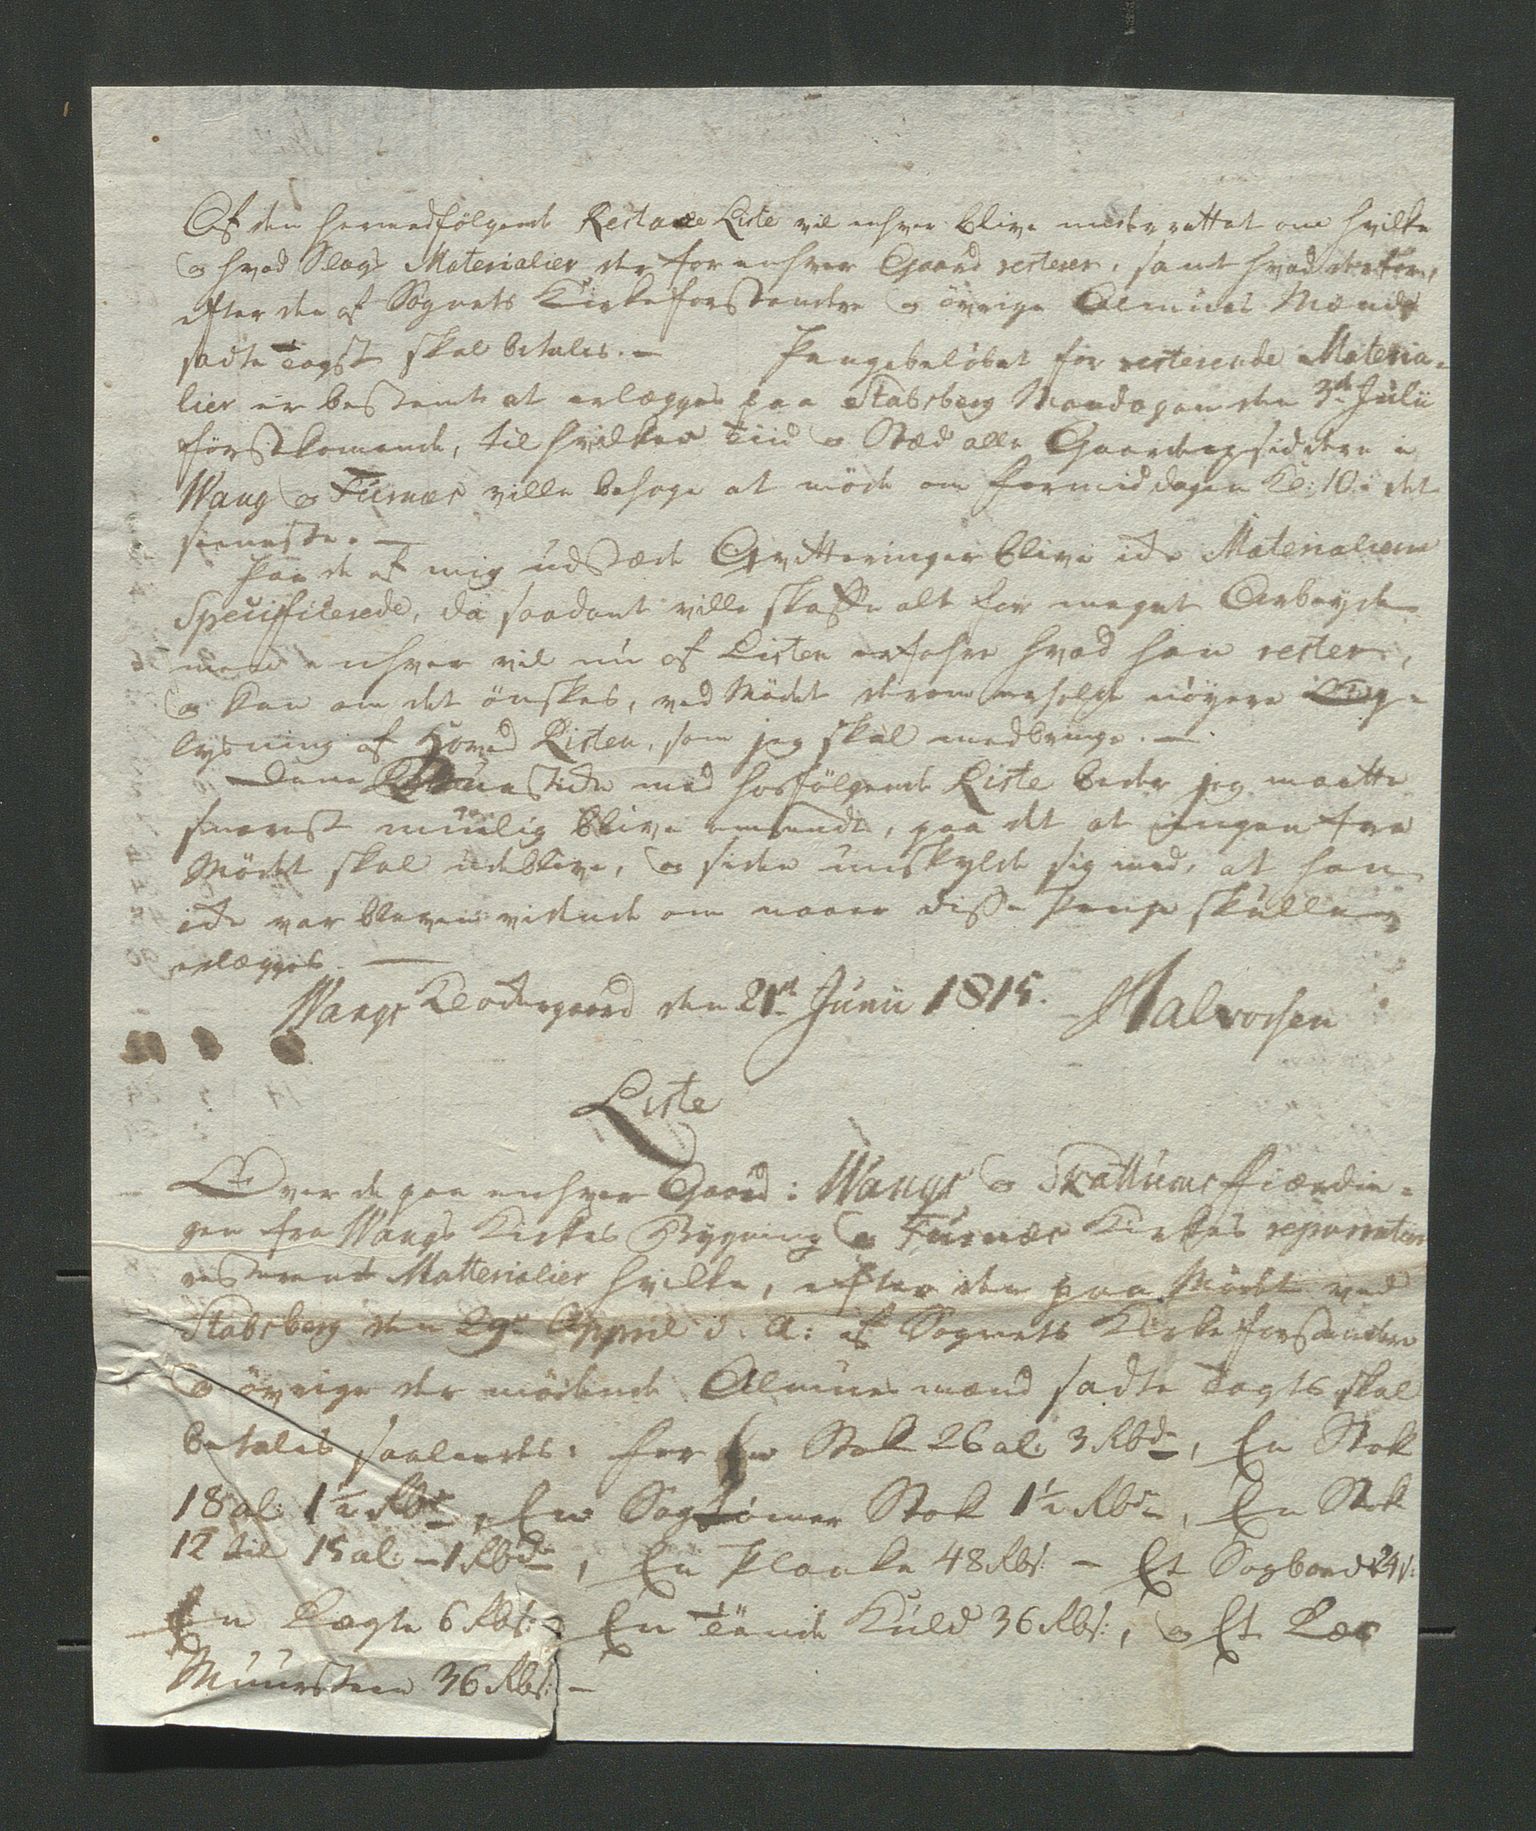 Af den hermedfölgende Restance Liste vil enhver blive underrettet om hvilke
og hvad Slags Materialier der for enhver Gaard resterer, samt hvad derfor,
efter den af Sognets Kirkeforstandere og övrige Almues Mænd
sadte Taxt skal betales. — Pengebelöbet for resterende Materia-
lier er bestemt at erlægges paa Stabsberg Mandagen den 3de Julii
förstkomende, til hvilken Tiid og Stæd alle Gaardopsiddere i
Wang og Furnæs ville behage at möde om formiddagen Kl: 10 i det
seeneste. —
Paa de af mig udstæde Qvitteringer blive icke Materialierne
Specificerede, da saadant ville skaffe alt for meget Arbeyde
men enhver vil nu af Listen erfahre hvad han rester,
og kan om det önskes, ved Mödet derom erholde nöyere Op-
lysning af Hoved Listen, som jeg skal medbringe. —
Denne med hosfölgende Liste beder jeg maatte
snarest muelig blive omsendt, paa det at ingen fra
Mödet skal udeblive, og siden undskylde sig med, at han
icke var bleven vidende om naar disse Penge skulle
erlægges. —
Wangs Klockergaard den 21de Junii 1815. Halvorsen
Liste
Over de paa enhver Gaard i Wangs og Skattums fiærdin-
gen fra Wangs Kirkes Bygning og Furnæs Kirkes reparation
resterende Matterialier hvilke, efter den paa Mödet ved
Stabsberg den 29de Appril d. A: af Sognets Kirkeforstandere
og övrige der mödende Almues mænd sadte Taxt skal
betales saaledes: for en Stok 26 al: 3 Rbd, En Stok
18 al: 1½ Rbd, En Sagtömer Stok 1½ Rbd, En Stok
12 til 15 al: — 1 Rbd, En Planke 48 Rbs: — Et Sagbord 24 s:
En Lægte 6 Rbs: En Tönde Kuld 36 Rbs:, og Et Læs
Muursteen 36 Rbs: —